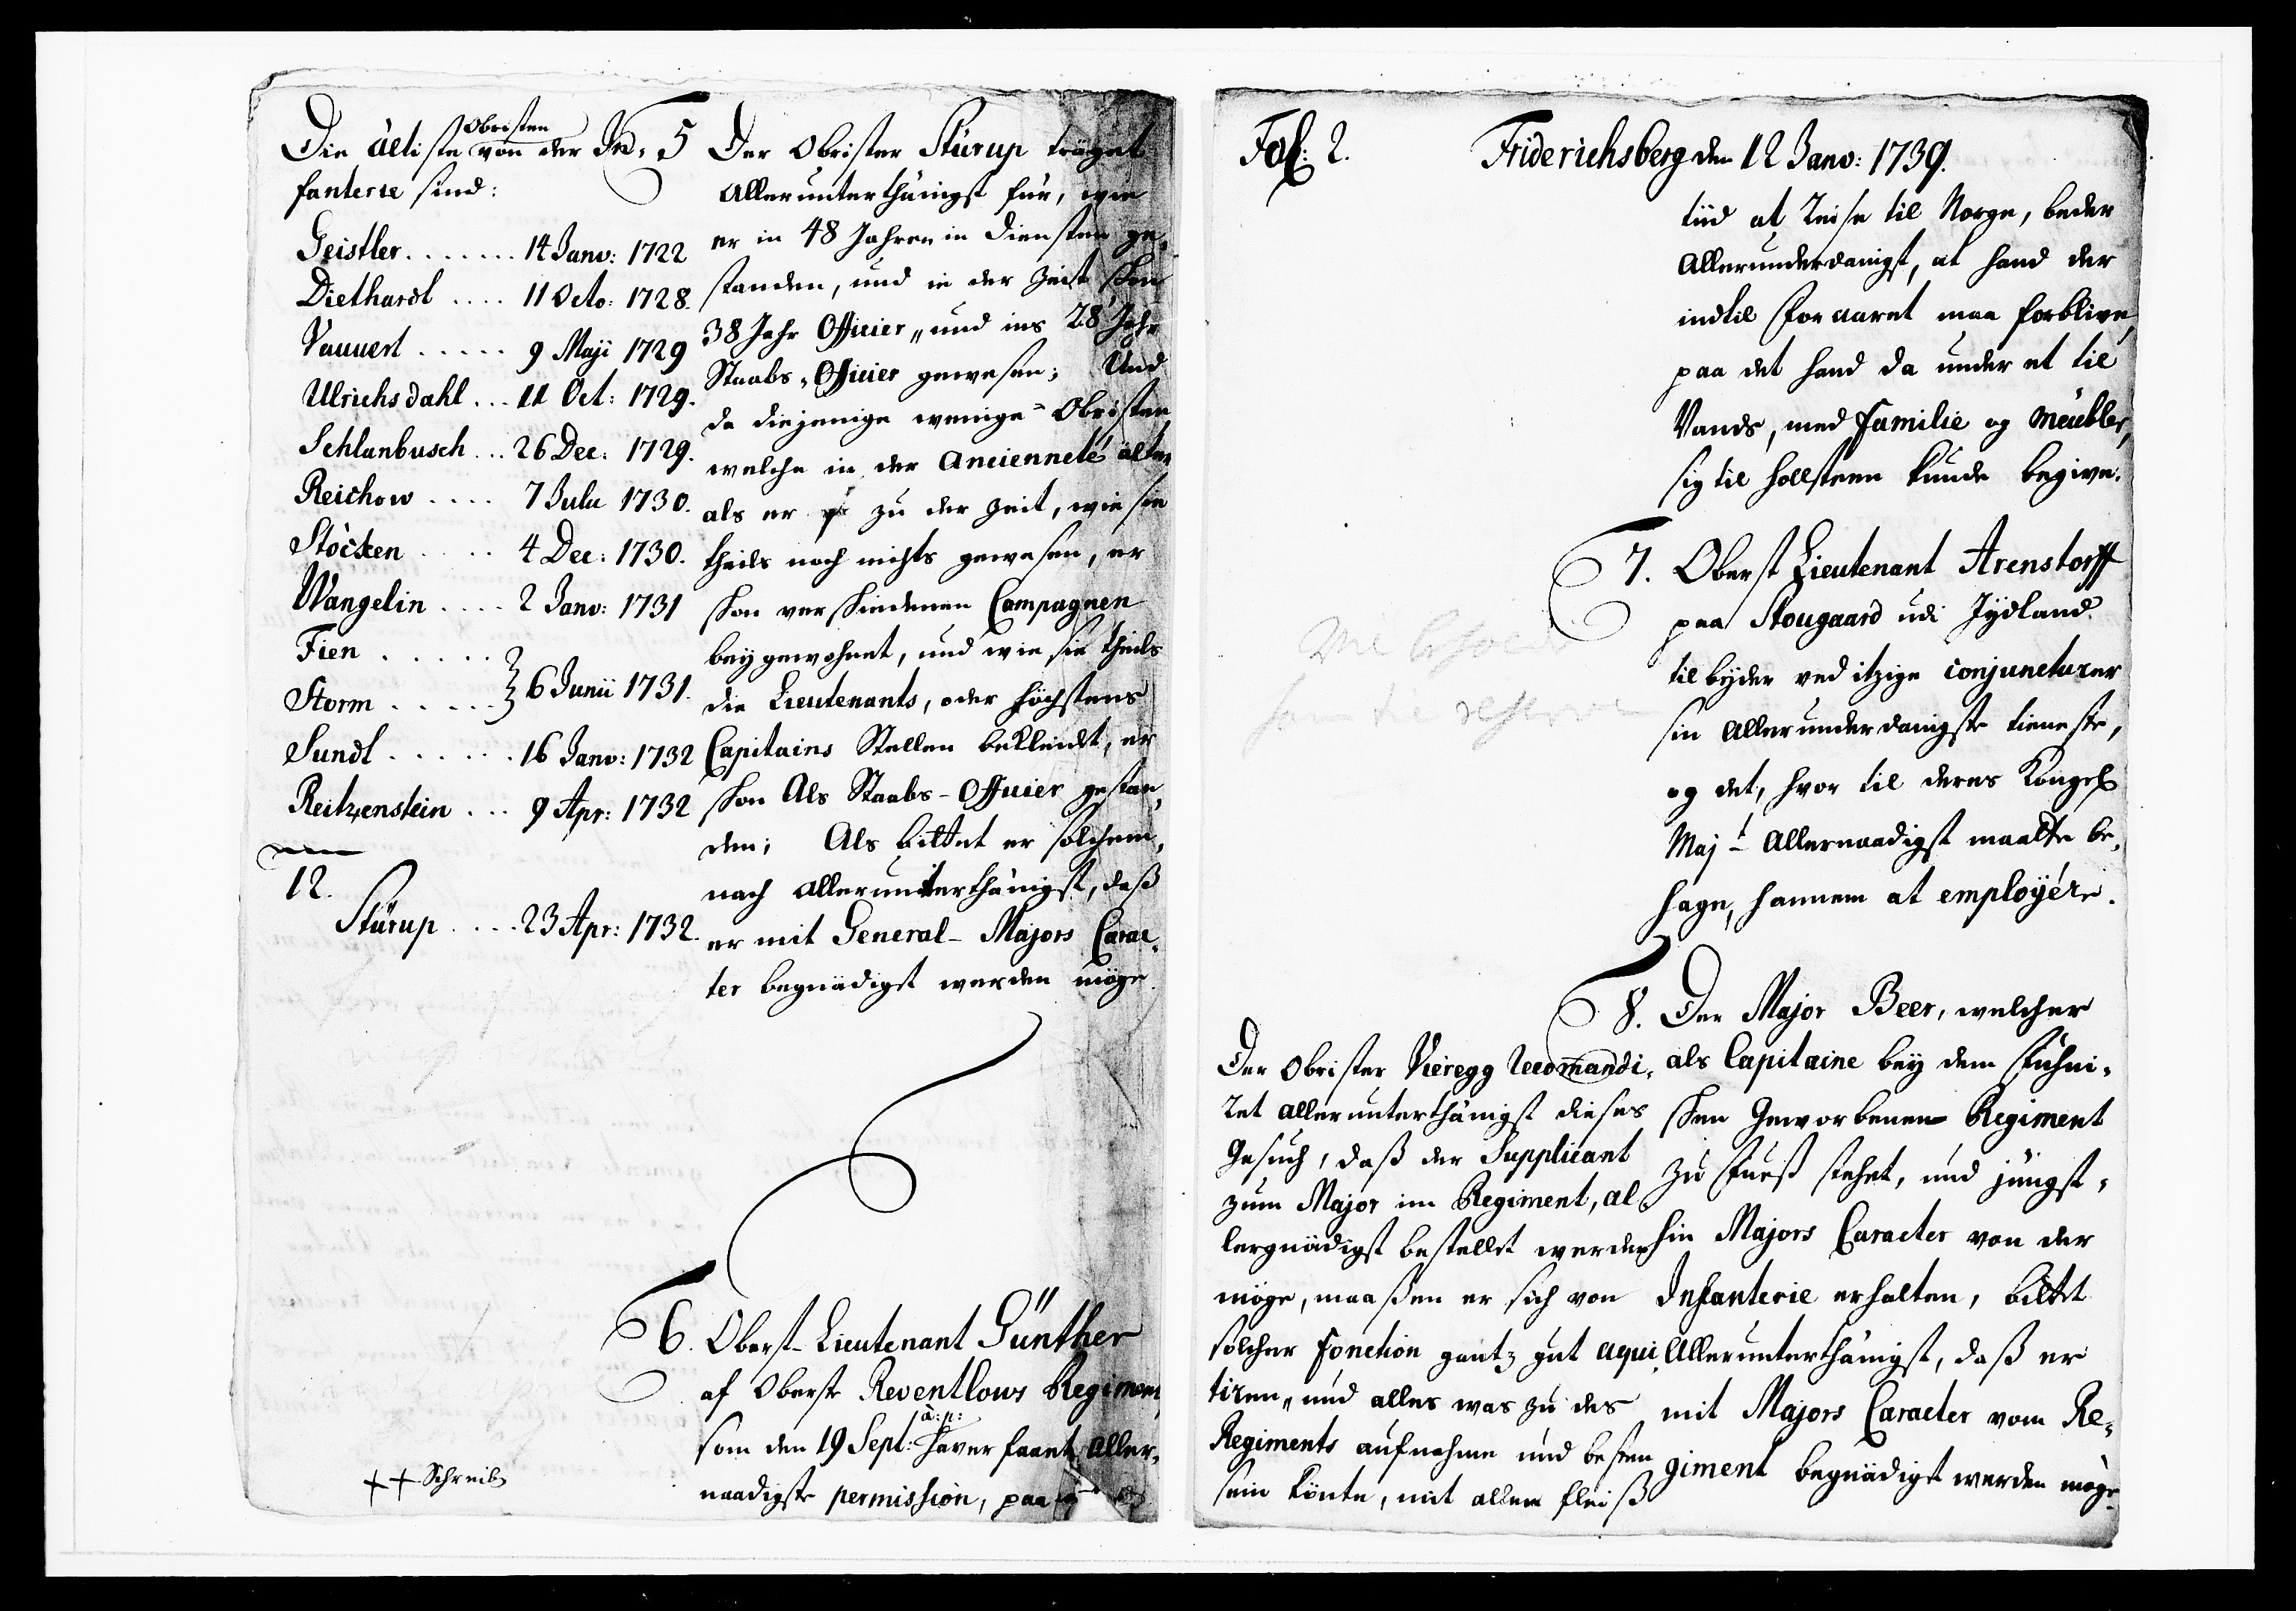 Die ältiste Obristen von der In-
fanterie sind:
Geistler ....... 14 Janv: 1722
Diethardt .... 11 Octo: 1728.
Vauvert ..... 9 Maji 1729
Ulrichsdahl ... 11 Oct: 1729.
Schlanbusch ... 26 Dec: 1729.
Reichow .... 7 Julii 1730.
Stöcken .... 4 Dec: 1730.
Wangelin .... 2 Janv: 1731
Fien ......
Storm ..... } 6 Junii 1731.
Sundt ...... 16 Janv: 1732
Reitzenstein ... 9 Apr: 1732
12.
Stürup .... 23 Apr: 1732.
++ Schreib
5 Der Obrister Stürup träget
Allerunterthänigst für, wie
er in 48 Jahren in Diensten ge-
standen, und in der Zeit schon
38 Jahr Officier, und ins 28 Jahr
Staabs-Officier gewesen; Und
da diejenige wenige Obristen
welche in der Ancienneté älter
als er zu der Zeit, wie sie
theils noch nichts gewesen, er
schon verschiedenen Campagnen
beygewohnet, und wie sie theils
die Lieutenants, oder höchstens
Capitains Stellen bekleidet, er
schon Als Staabs-Officier gestan-
den; Als bittet er solchem-
nach allerunterthänigst, daß
er mit General-Majors Carac-
ter begnädigt werden möge.
6. Oberst-Lieutenant Günther
af Oberste Reventlows Regiment
som den 19 Sept: a: p: haver faaet Aller-
naadigste permission, paa
Fol: 2. Friderichsberg den 12 Janv: 1739.
tiid at reise til Norge, beder
Allerunderdanigst, at hand der
indtil Foraaret maa forblive,
paa det hand da under et til
Vands, med Familie og Meubler,
sig til Hollsteen kunde begive.
7. Oberst Lieutenant Arenstorff
paa Stougaard udi Jydland
tilbyder ved itzige conjuncturer
sin Allerunderdanigste tieneste,
og det, hvor til deres Kongel
Majt Allernaadigst maatte be-
hage, hannem at employére.
8. Der Major Beer, welcher
als Capitaine bey dem Fühni-
schen Geworbenen Regiment
zu Fueß stehet, und jüngst-
hin Majors Caracter von der
Infanterie erhalten, bittet
Allerunterthänigst, daß er
mit Majors Caracter vom Re-
giment begnädiget werden möge.
Der Obrister Vieregg recomandi-
ret allerunterthänigst dieses
Gesuch, daß der Supplicant
zum Major im Regiment, al-
lergnädigst bestellet werden
möge, maaßen er sich von
solcher Fonction gantz gut aqui-
tiren, und alles was zu des
Regiments aufnahme und besten
sein könte, mit allem fleiß